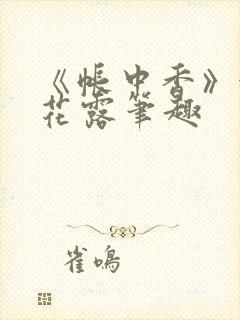 《帐中香》
花露笔趣
雀鸣